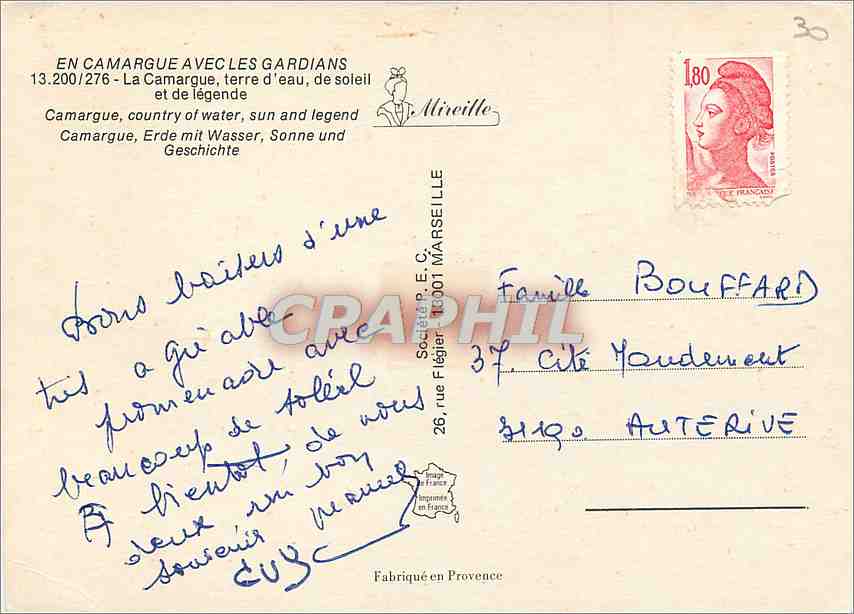 EN CAMARGUE AVEC LES GARDIANS
13.200/276 - La Camargue, terre d'eau, de soleil
et de légende
Camargue, country of water, sun and legend
Camargue, Erde mit Wasser, Sonne und
Geschichte
Mireille
30
1,80
POSTES
QUE FRANÇAISE
Bons baisers d'une
très agréable
promenade avec
beaucoup de soleil
A bientôt, de nous
deux un bon
souvenir
GUY
Société P.E.C.
26, rue Flégier - 13001 MARSEILLE
CPAPHIL
Famille BOUFFARD
37. Cité Mondement
31190 AUTERIVE
Image
de France
Imprimée
en France
Fabriqué en Provence